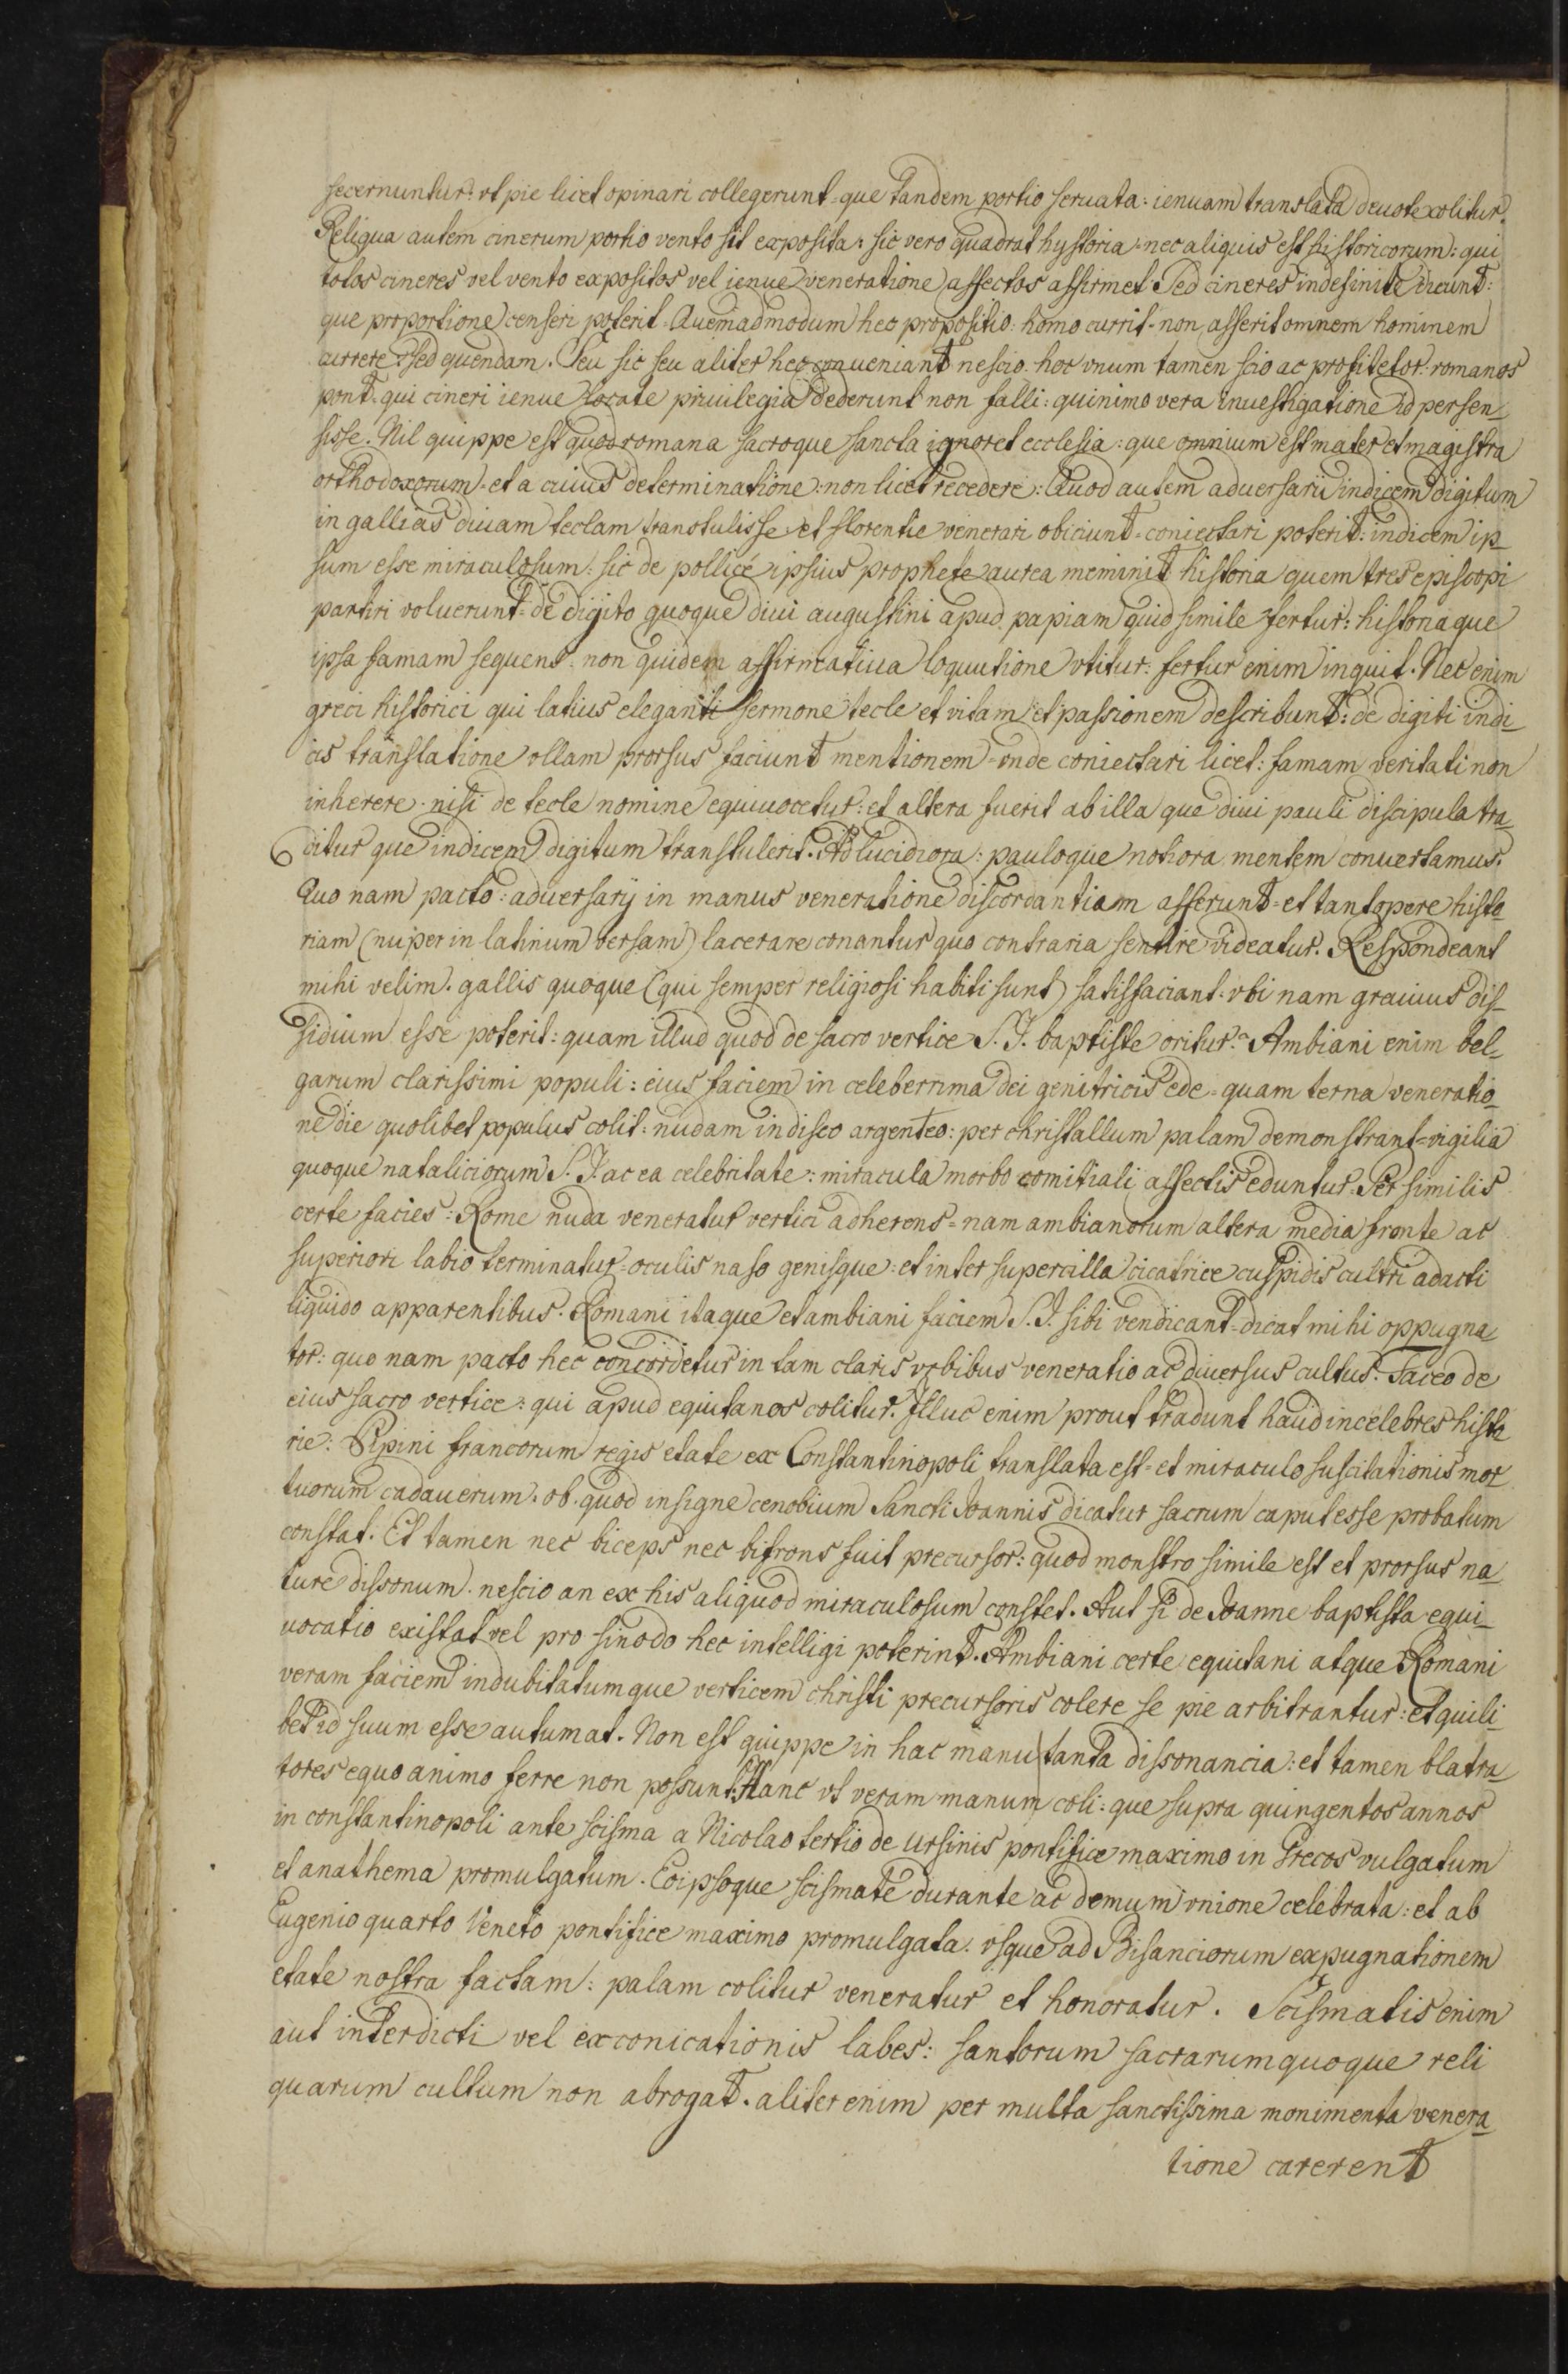 secernuntur: vt pie licet opinari collegerunt = que tandem portio seruata: ienuam translata deuote xolitur.
Reliqua autem cinerum portio vento sit exposita: sic vero quadrat hystoria: nec aliquis est historicorum: qui
totos cineres vel vento expositos vel ienue veneratione affectos affirmet. Sed cineres indefinite dicunt:
que proportione censeri poterit. Quemadmodum hec propositio: homo currit. non asserit omnem hominem
currere: sed quendam. Seu sic seu aliter hec conueniant nescio. hoc vnum tamen scio ac profitetor. romanos
pont. qui cineri ienue locate priuilegia dederunt non falli: quinimo vera inuestigatione id persen_
sisse. Nil quippe est quod romana sacroque sancta ignoret ecclesia: que omnium est mater et magistra
orthodoxorum = et a cuius determinatione: non licet recedere: Quod autem aduersarii indicem digitum
in gallias diuam teclam transtulisse: et florentie venerari obiciunt = coniectari poterit: indicem ip_
sum esse miraculosum: sic de pollice ipsius prophete aurea meminit historia quem tres episcopi
partiri voluerunt = de digito quoque diui augustini apud papiam quid simile fertur: historia que
ipsa famam sequens. non quidem affirmatiua loquutione vtitur: fertur enim inquit. Nec enim
greci historici qui latius eleganti sermone tecle et vitam et passionem describunt: de digiti indi_
cis translatione vllam prorsus faciunt mentionem = vnde coniectari licet: famam veritati non
inherere. nisi de tecle nomine equiuocetur: et altera fuerit ab illa que diui pauli discipula tra_
ditur que indicem digitum transtulerit. Ad lucidiora: pauloque notiora mentem conuertamus.
Quo nam pacto: aduersarij in manus veneratione discordantiam asserunt = et tantopere histo_
riam (nuper in latinum versam) lacerare conantur quo contraria sentire videatur. Respondeant
mihi velim. gallis quoque (qui semper religiosi habiti sunt) satisfaciant: vbi nam grauius dis_
sidium esse poterit: quam illud quod de sacro vertice S. J. baptiste oritur. Ambiani enim bel_
garum clarissimi populi: eius faciem in celeberrima dei genitricis ede = quam terna veneratio_
ne die quolibet populus colit: nudam in disco argenteo: per christallum palam demonstrant = vigilia
quoque nataliciorum S. J. ac ea celebritate: miracula morbo comitiali affectis eduntur. Per similis
certe facies: Rome nuda veneratur vertici adherens = nam ambianorum altera media fronte ac
superiori labio terminatur = oculis naso genisque: et inter supercilla cicatrice cuspidis cultri adacti
liquido apparentibus. Romani itaque et ambiani faciem S. J. sibi vendicant = dicat mihi oppugna_
tor: quo nam pacto hec concordetur in tam claris vrbibus veneratio ac diuersus cultus. Taceo de
eius sacro vertice: qui apud equitanos colitur. Illuc enim prout tradunt haud incelebres histo_
rie: Pipini francorum regis etate ex Constantinopoli translata est = et miraculo suscitationis mor_
tuorum cadauerum. ob quod insigne cenobium Sancti Joannis dicatur sacrum caput esse probatum
constat. Et tamen nec biceps nec bifrons fuit precursor: quod monstro simile est et prorsus na_
ture dissonum. nescio an ex his aliquod miraculosum constet. Aut si de Joanne baptista equi_
uocatio existat vel pro sinodo hec intelligi poterint. Ambiani certe equitani atque Romani
veram faciem indubitatumque verticem christi precursoris colere se pie arbitrantur: et quili_
bet id suum esse autumat. Non est quippe in hac manu tanta dissonancia: et tamen blatra_
tores equo animo ferre non possunt. Hanc vt veram manum coli: que supra quingentos annos
in constantinopoli ante scisma a Nicolao tertio de Ursinis pontifice maximo in Grecos vulgatum
et anathema promulgatum. Eoipsoque scismate durante ac demum vnione celebrata: et ab
Eugenio quarto Veneto pontifice maximo promulgata. vsque ad Bisanciorum expugnationem
etate nostra factam: palam colitur veneratur et honoratur. Scismatis enim
aut interdicti vel exconicationis labes: santorum sacrarumquoque reli
quarum cultum non abrogat. aliter enim per multa sanctissima monimenta venera_
tione carerent